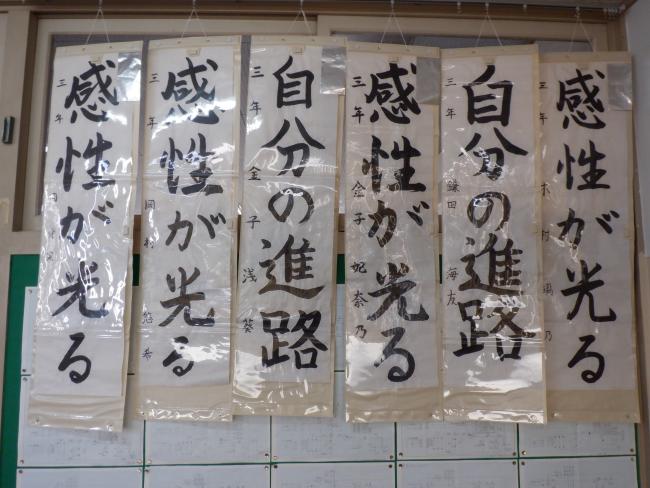 感性が光る
三年 木村 乃
自分の進路
三年 鎌田 海友
感性が光る
三年 金子 妃奈乃
自分の進路
三年 金子 浅葵
感性が光る
三年 岡村 悠希
感性が光る
三年